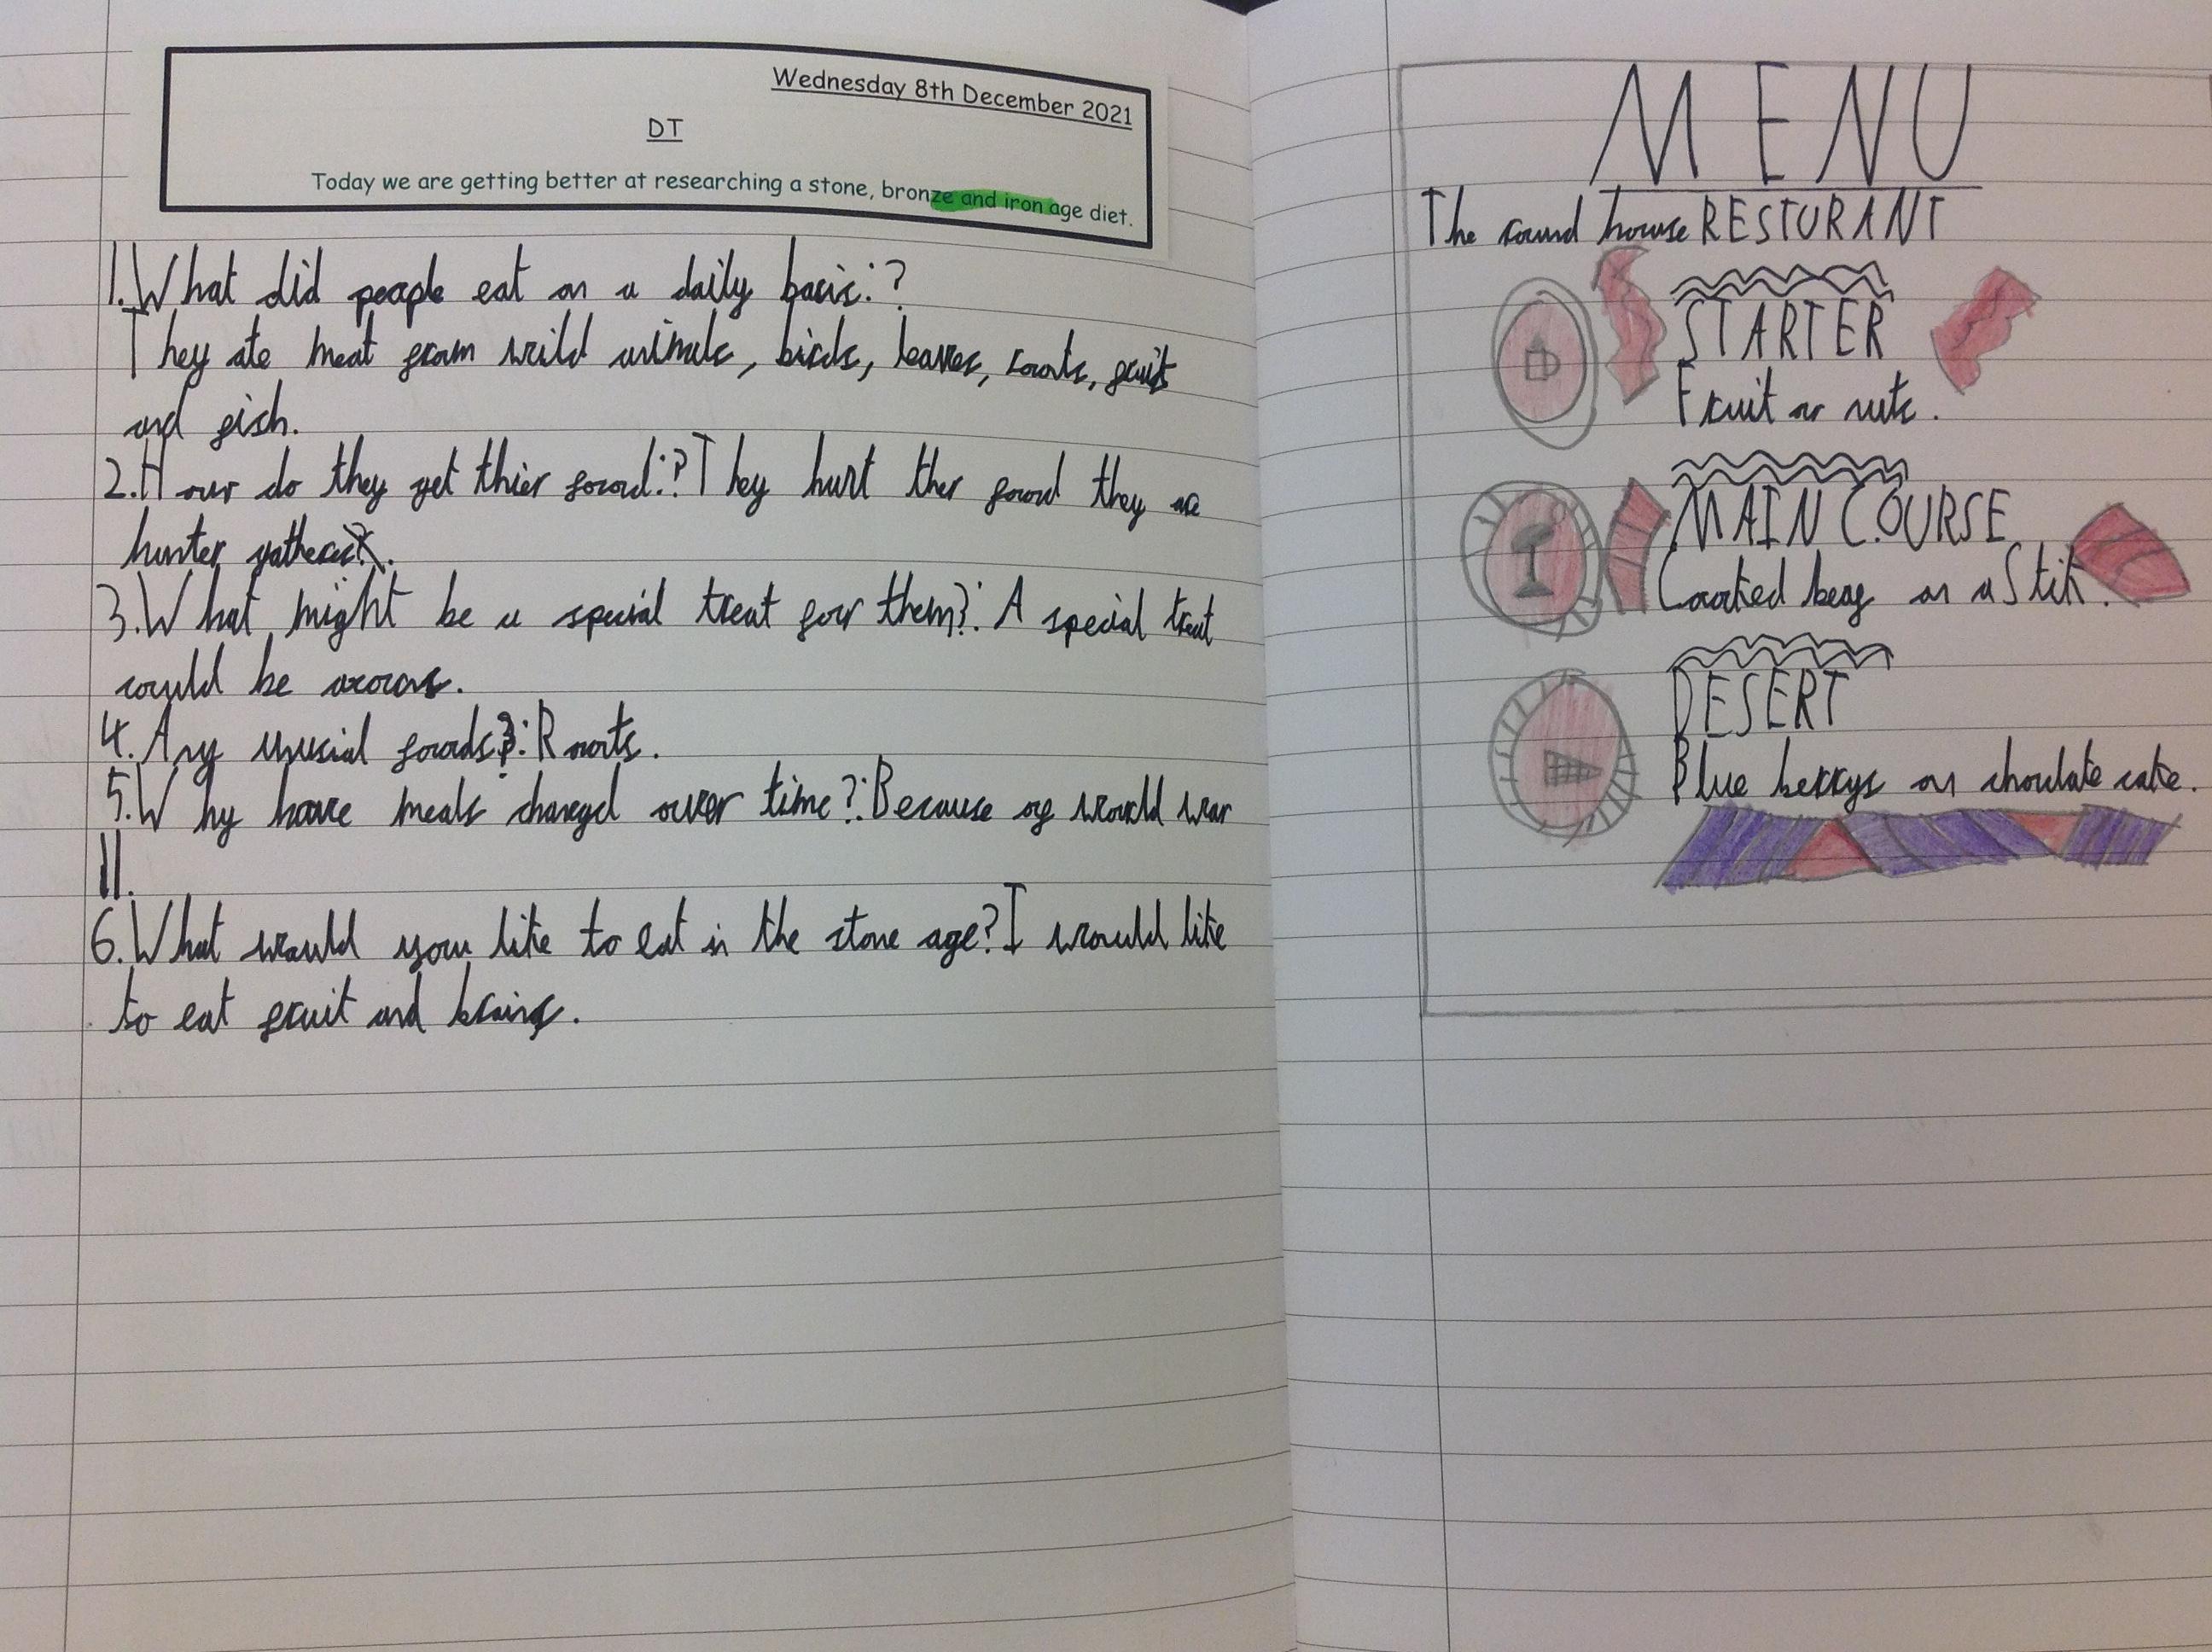 Wednesday 8th December 2021
DT
Today we are getting better at researching a stone, bronze and iron age diet.
1. What did people eat on a daily basis:?
They ate meat from wild animals, birds, leaves, roots, fruits
and fish.
2. How do they get thier food:? They hunt ther food they are
hunter gatherers.
3. What might be a special treat for them?: A special treat
could be acorns.
4. Any unusial foods?: Roots.
5. Why have meals changed over time?: Because of would war
11.
6. What would you like to eat in the stone age? I would like
to eat fruit and
MENU
The round house RESTURANT
STARTER
Fruit or nuts.
MAIN COURSE
Cooked beef on a Stik.
DESERT
Blue berrys on choulate cake.